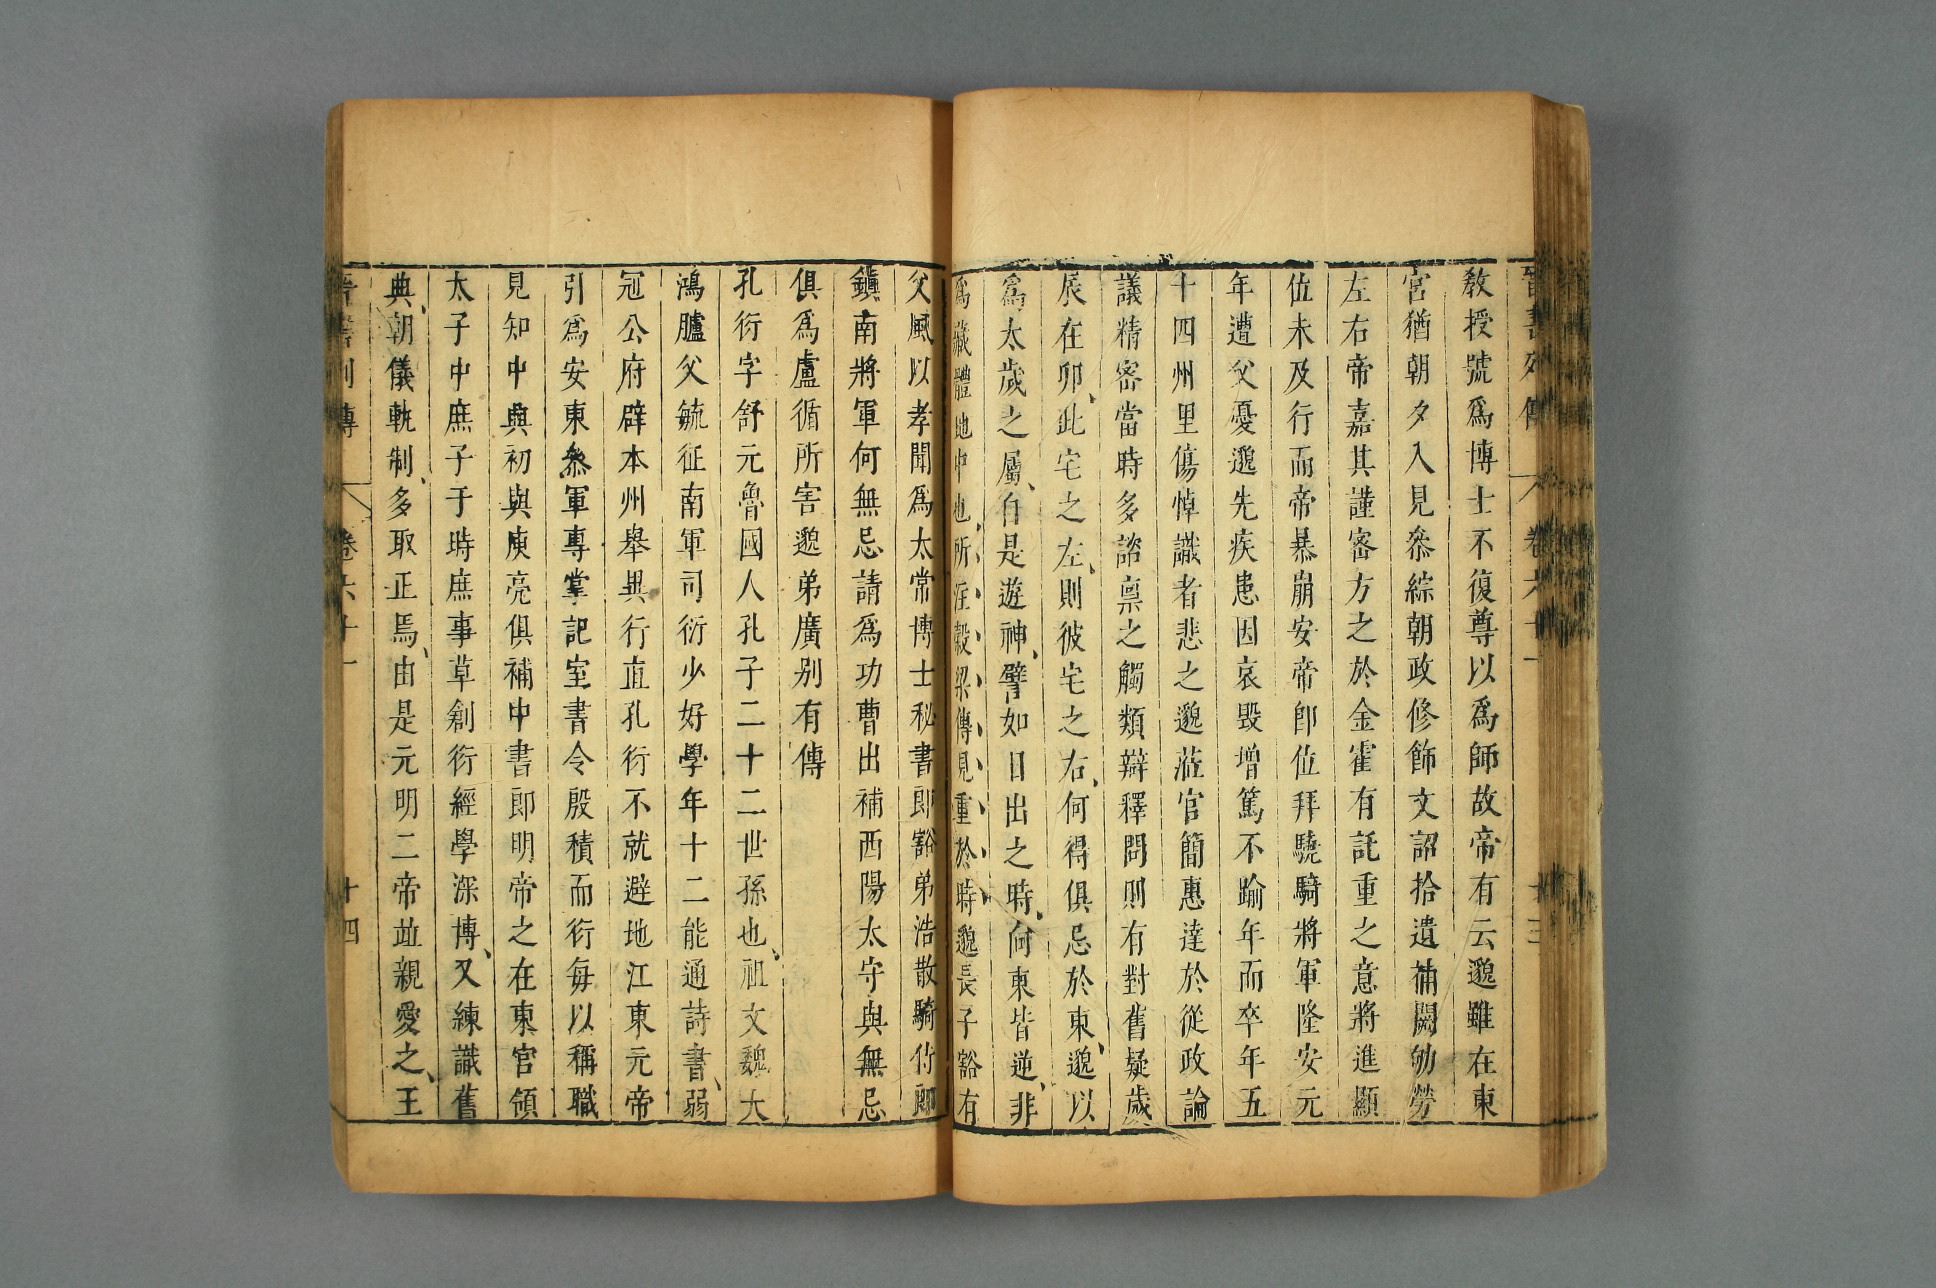 晉書列傳 卷六十一 十三
教授號爲博士不復尊以爲師故帝有云邈雖在東
宮猶朝夕入見叅綜朝政修飾文詔拾遺補闕劬勞
左右帝嘉其謹密方之於金霍有託重之意將進顯
位未及行而帝暴崩安帝卽位拜驍騎將軍隆安元
年遭父憂邈先疾患因哀毀增篤不踰年而卒年五
十四州里傷悼識者悲之邈蒞官簡惠達於從政論
議精密當時多諮稟之觸類辯釋問則有對舊疑歲
辰在卯此宅之左則彼宅之右何得俱忌於東邈以
爲太歲之屬自是遊神譬如日出之時向東皆逆非
爲藏體地中也所注穀梁傳見重於時邈長子豁有
父風以孝聞爲太常博士秘書郎豁弟浩散騎侍郎
鎭南將軍何無忌請爲功曹出補西陽太守與無忌
俱爲盧循所害邈弟廣別有傳
孔衍字舒元魯國人孔子二十二世孫也祖文魏大
鴻臚父毓征南軍司衍少好學年十二能通詩書弱
冠公府辟本州舉異行直孔衍不就避地江東元帝
引爲安東叅軍專掌記室書令殷積而衍每以稱職
見知中興初與庾亮俱補中書郎明帝之在東宮領
太子中庶子于時庶事草創衍經學深博又練識舊
典朝儀軌制多取正焉由是元明二帝並親愛之王
晉書列傳 卷六十一 十四